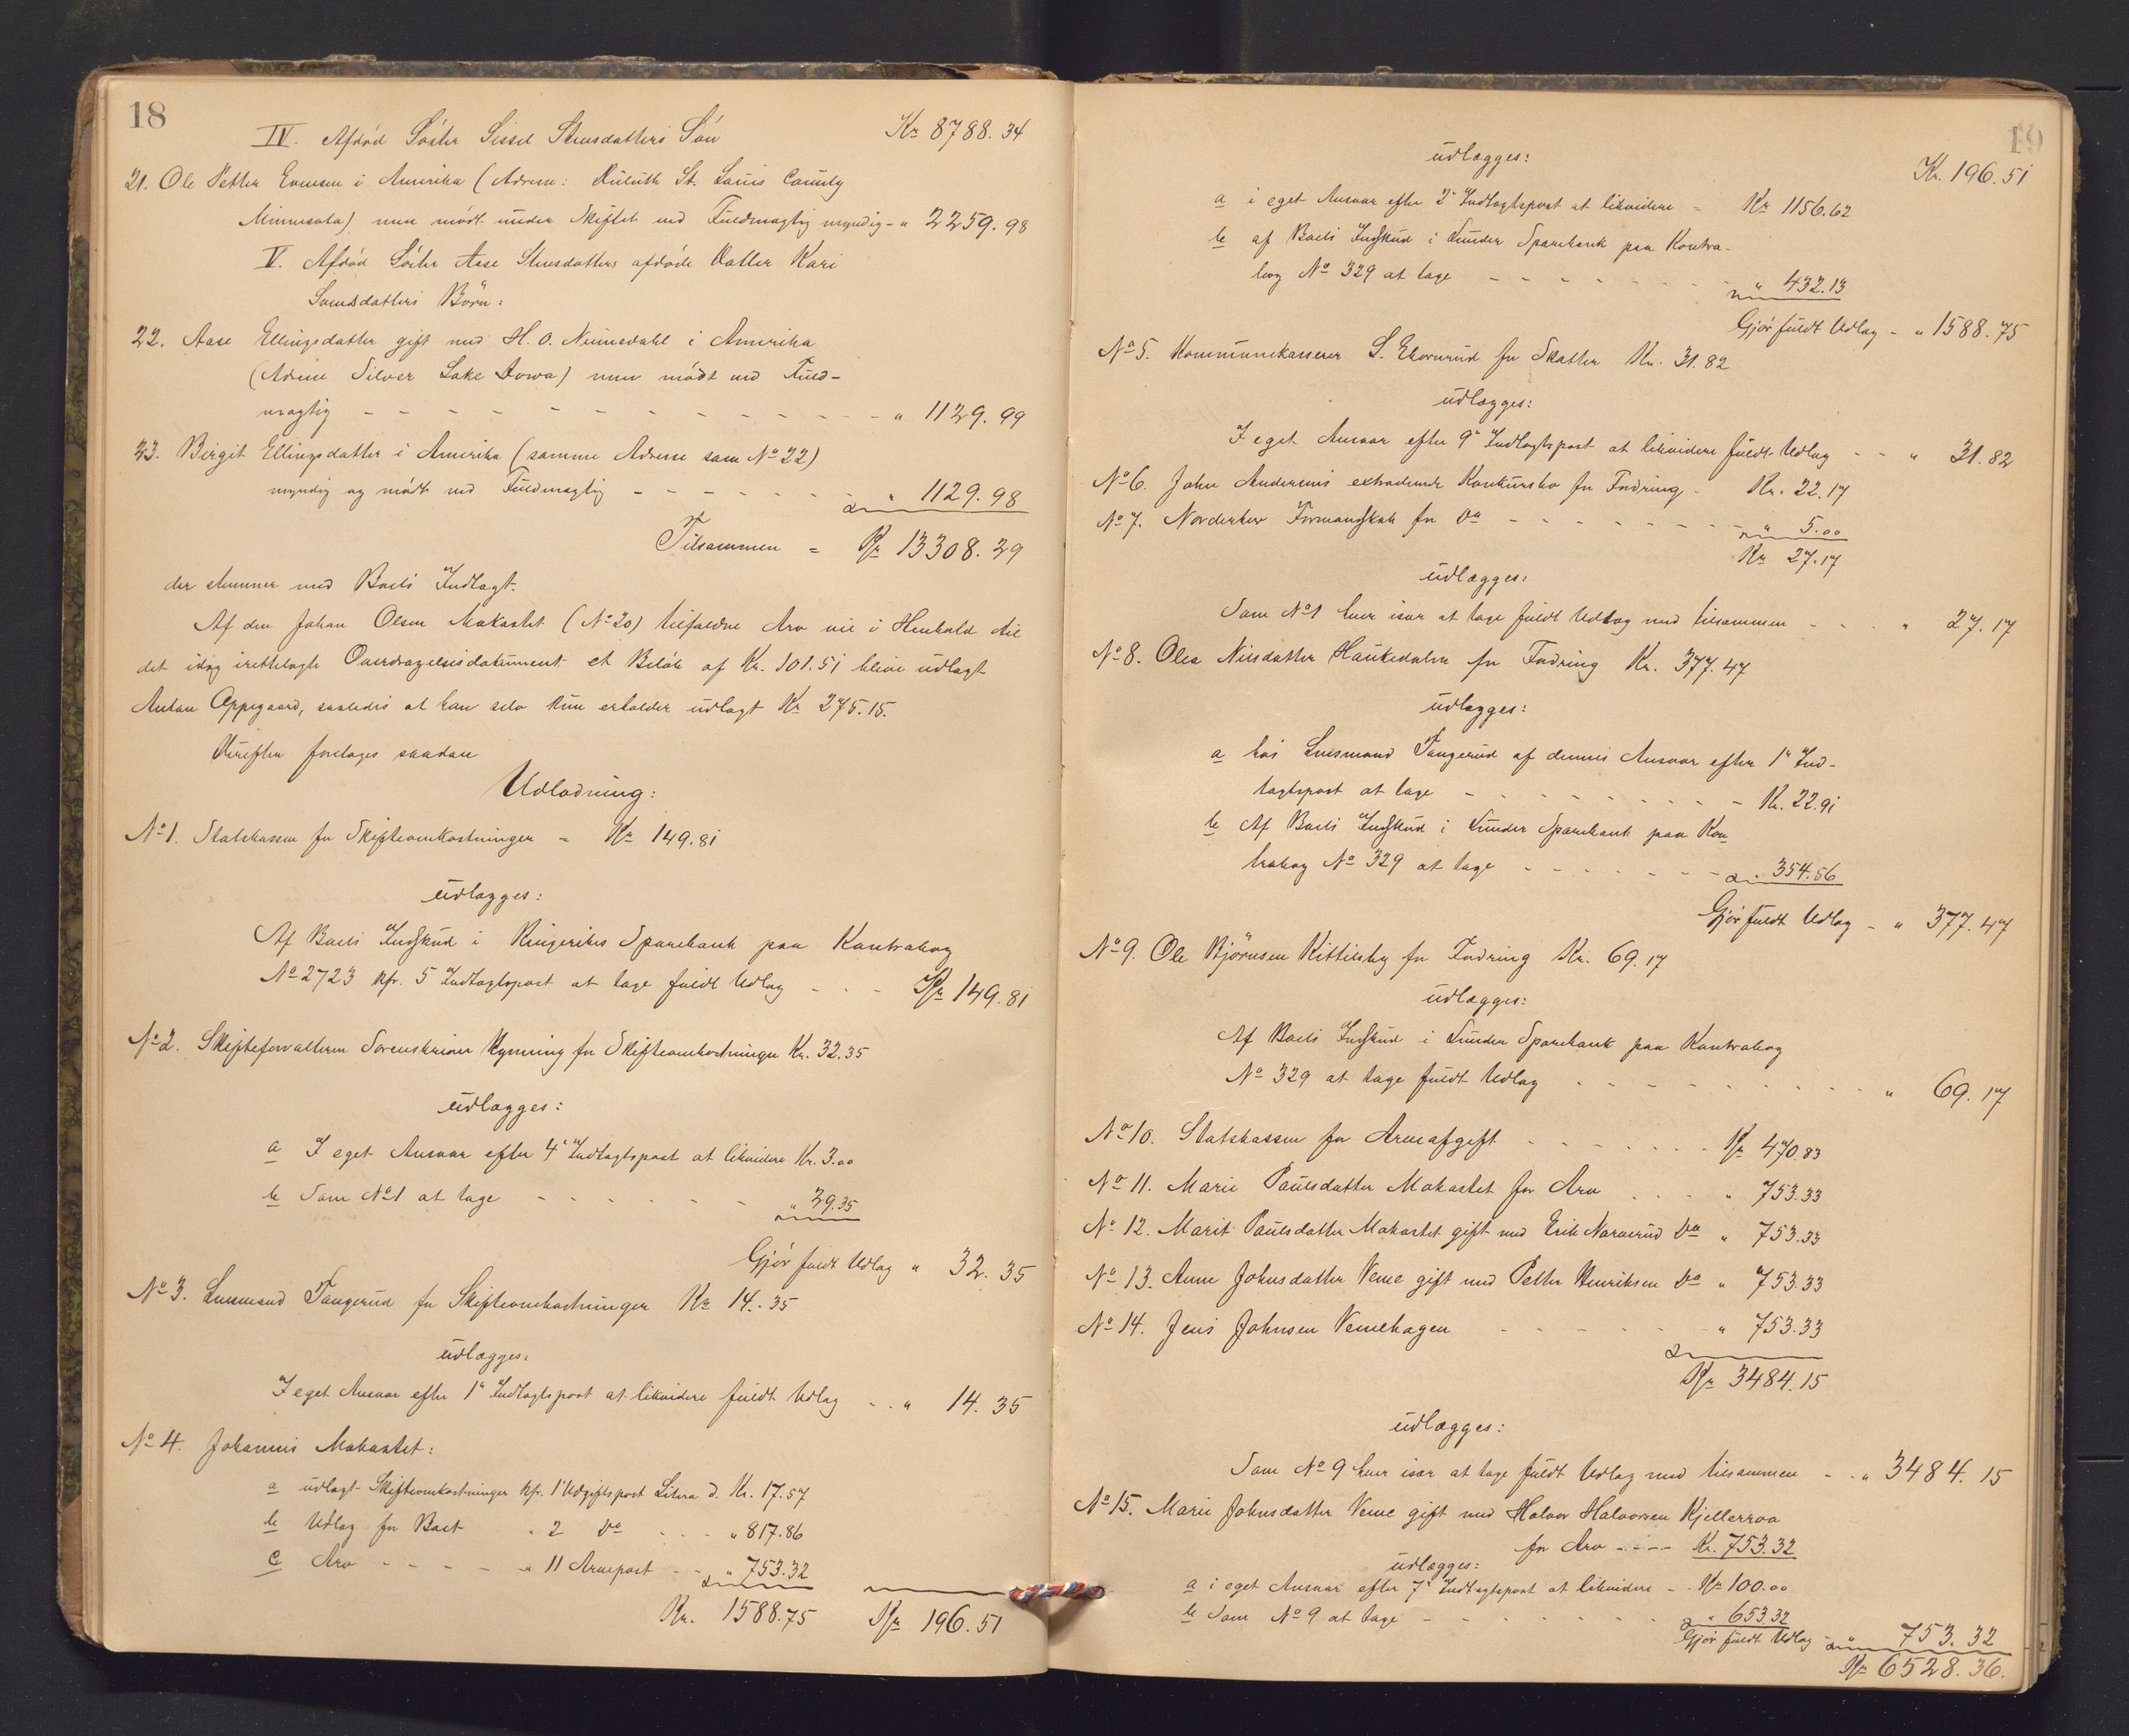 18
IV. Afdød Søster Sissel Stensdatters Søn Kr 8788.34
21. Ole Petter Evensen i Amerika (Adresse: Duluth St. Louis County
Minnesota) men mødt under Skiftet ved Fuldmægtig myndig - " 2259.98
V. Afdød Søster Aase Stensdatters afdøde Datter Kari
Børn:
22. Aase Ellingsdatter gift med H. O. Numedahl i Amerika
(Adresse Silver Lake Iowa) men mødt ved Fuld-
mægtig - - - - - - - - - - - - " 1129.99
23. Birgit Ellingsdatter i Amerika (samme Adresse som No 22)
myndig og mødt ved Fuldmægtig - - - - - - " 1129.98
Tilsammen = Kr 13308.29
der stemmer med Boets Indtægt.
Af den Johan Olsen Mokastet (No 20) tilfaldne Arv vil i Henhold til
det idag irettelagte Overdragelsesdokument et Beløb af Kr. 101.51 blive udlagt
Anton Oppegaard, saaledes at han selv kun erholder udlagt Kr 275.15.
Derefter foretages saadan
Udlodning:
No 1. Statskassen for Skifteomkostninger = Kr 149.81
udlægges:
Af Boets Indskud i Ringerikes Sparebank paa Kontrabog
No 2723 kfr. 5 Indtægtspost at tage fuldt Udlæg - - - Kr 149.81
No 2. Skifteforvalteren Sorenskriver Hynning for Skifteomkostninger Kr. 32.35
udlægges:
a I eget Ansvar efter 4' Indtægtspost at likvidere Kr. 3.00
b Som No 1 at tage - - - - - - - " 29.35
Gjør fuldt Udlæg " 32.35
No 3. Lensmand Tangerud for Skifteomkostninger Kr 14.35
udlægges:
I eget Ansvar efter 1' Indtægtspost at likvidere fuldt Udlæg - . " 14.35
No 4. Johannes Mokastet:
a udlagt Skifteomkostninger kfr. 1' Udgiftspost Litra d. Kr. 17.57
b Udlæg for Boet . 2 do - - - " 817.86
c Arv - - - - " 11 Arvepost - - " 753.32
Kr. 1588.75 Kr 196.51
19
udlægges: Kr. 196.51
a i eget Ansvar efter 2' Indtægtspost at likvidere = Kr 1156.62
b af Boets Indskud i Lunder Sparebank paa Kontra-
bog No 329 at tage - - - - - - - " 432.13
Gjør fuldt Udlæg - " 1588.75
No 5. Kommunekasserer S. for Skatter Kr. 31.82
udlægges:
I eget Ansvar efter 9' Indtægtspost at likvidere fuldt Udlæg - - " 31.82
No 6. John Andersens extraderende Konkursbo for Fordring - Kr. 22.17
No 7. Norderhov Formandskab for do - - - - - - - - " 5.00
Kr 27.17
udlægges:
Som No 1 hver især at tage fuldt Udlæg med tilsammen - - - . " 27.17
No 8. Olea Nilsdatter Haukedalen for Fordring Kr. 377.47
udlægges:
a hos Lensmand Tangerud af dennes Ansvar efter 1' Ind-
tægtspost at tage - - - - - - - - - Kr. 22.91
b Af Boets Indskud i Lunder Sparebank paa Kon-
trabog No 329 at tage - - - - - - - " 354.56
Gjør fuldt Udlæg - " 377.47
No 9. Ole Bjørnsen Kittilsby for Fordring Kr. 69.17
udlægges:
Af Boets Indskud i Lunder Sparebank paa Kontrabog
No 329 at tage fuldt Udlæg . - - - - - - - . " 69.17
No 10. Statskassen for Arveafgift - - - - - - - Kr 470.83
No 11. Marie Paulsdatter Mokastet for Arv . . - - " 753.33
No 12. Marit Paulsdatter Mokastet gift med Erik Narverud do " 753.33
No 13. Anne Johnsdatter Veme gift med Petter Henriksen do " 753.33
No 14. Jens Johnsen Vemehagen - - - - - " 753.33
Kr 3484.15
udlægges:
Som No 9 hver især at tage fuldt Udlæg med tilsammen - . " 3484.15
No 15. Marie Johnsdatter Veme gift med Halvor Halvorsen Kjellerroa
for Arv - - - - Kr. 753.32
udlægges:
a i eget Ansvar efter 7' Indtægtspost at likvidere - . Kr 100.00
b Som No 9 at tage - - - - - - - " 653.32
Gjør fuldt Udlæg - " 753.32
Kr 6528.36.